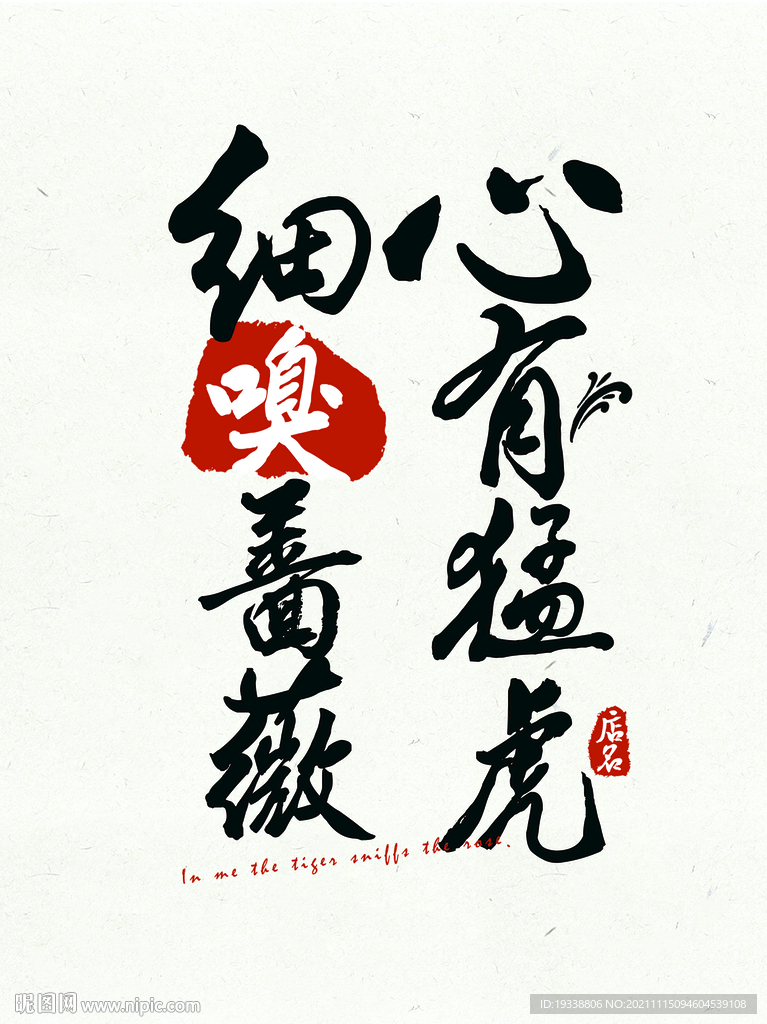 心有猛虎
细嗅蔷薇
店名
In me the tiger sniffs the rose.
昵图网 www.nipic.com
ID:19338806 NO:20211115094604539108